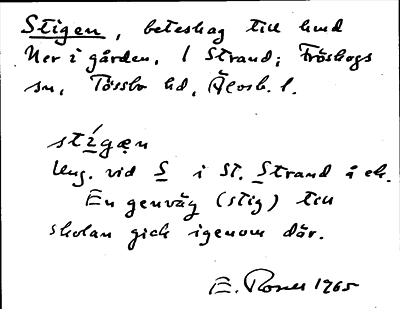 Stigen, beteshag till hmd
Ner i gården, 1 Strand; Fröskogs
sn, Tössbo hd, Älvsb. l.
stígen
Ung. vid S i St. Strand å ek.
En genväg (stig) till
skolan gick igenom där.
E. Rosen 1965